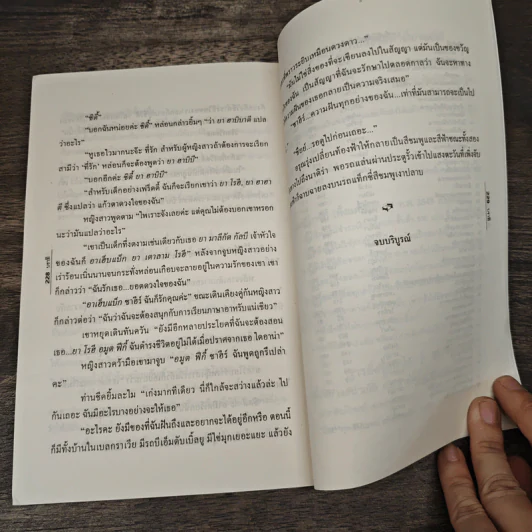 “ชิตี้”
“บอกฉันหน่อยค่ะ ชิตี้” หล่อนกล่าวยิ้มๆ “ว่า ยา ฮาบิบาตี แปล
ว่าอะไร”
“หูเธอไวมากนะจ๊ะ ที่รัก สำหรับผู้หญิงสาวถ้าต้องการจะเรียก
สามีว่า ‘ที่รัก’ หล่อนก็จะต้องพูดว่า ยา ฮาบีบี”
“บอกอีกค่ะ ชิตี้ ยา ฮาบีบี”
“สำหรับเด็กอย่างเฟร็ดดี้ ฉันก็จะเรียกเขาว่า ยา โรฮี, ยา อาฮา
ดี ซึ่งแปลว่า แก้วตาดวงใจของฉัน”
หญิงสาวพูดตาม “ไพเราะจังเลยค่ะ แต่คุณไม่ต้องบอกเขาหรอก
นะว่ามันแปลว่าอะไร”
“เขาเป็นเด็กที่งดงามเช่นเดียวกับเธอ ยา มาลีกัต กัลบี เจ้าหัวใจ
ของฉันก็
หลังจากจูบหญิงสาวอย่าง
เร่าร้อนเนิ่นนานจนกระทั่งหล่อนเกือบจะลายอยู่ในความรักของเขา เขา
ก็กล่าวว่า “ฉันรักเธอ...ยอดดวงใจของฉัน”
ชาฮีร์ ฉันก็รักคุณค่ะ” ขณะเดินเคียงคู่กันหญิงสาว
ก็กล่าวต่อว่า “ฉันว่าฉันจะต้องสนุกกับการเรียนภาษาอาหรับแน่เชียว”
เขาหยุดเดินทันควัน “ยังมีอีกหลายประโยคที่ฉันจะต้องสอน
เธอ...ยา โรฮี อมูต ฟีกี้ ฉันดำรงชีวิตอยู่ไม่ได้เมื่อปราศจากเธอ ไดอาน่า”
หญิงสาวคว้ามือเขามาจูบ “อมูต ฟีกี้ ชาฮีร์ ฉันพูดถูกรึเปล่า
คะ”
ท่านชีคยิ้มละไม “เก่งมากทีเดียว นี่ก็ใกล้จะสว่างแล้วล่ะ ไป
กันเถอะ ฉันมีอะไรบางอย่างจะให้เธอ”
“อะไรคะ ยังมีของที่ฉันฝันถึงและอยากจะได้อยู่อีกหรือ ตอนนี้
ก็มีทั้งบ้านในเบลกราเวีย มีรถบีเอ็มดับเบิ้ลยู มีไข่มุกเยอะแยะ แล้วยัง
228
ระยิบเหมือนดวงดาว...”
“มันไม่ใช่สิ่งของที่จะเขียนลงไปในสัญญา แต่มันเป็นของขวัญ
ของฉัน เป็นสัญญาที่ฉันจะรักษาไปตลอดกาลว่า ฉันจะหาทาง
ความฝันของเธอกลายเป็นความจริงเสมอ”
“ชาฮีร์...ความฝันทุกอย่างของฉัน...เท่าที่มันสามารถจะเป็นไป
รอดูไปก่อนเถอะ...”
อรุณรุ่งเปลี่ยนท้องฟ้าให้กลายเป็นสีชมพูและสีฟ้าขณะทั้งสอง
พอรถแล่นผ่านประตูรั้วเข้าไปแสงตะวันที่เพิ่งจับ
ฉายลงบนรถแท็กซี่สีชมพูเงาปลาบ
จบบริบูรณ์